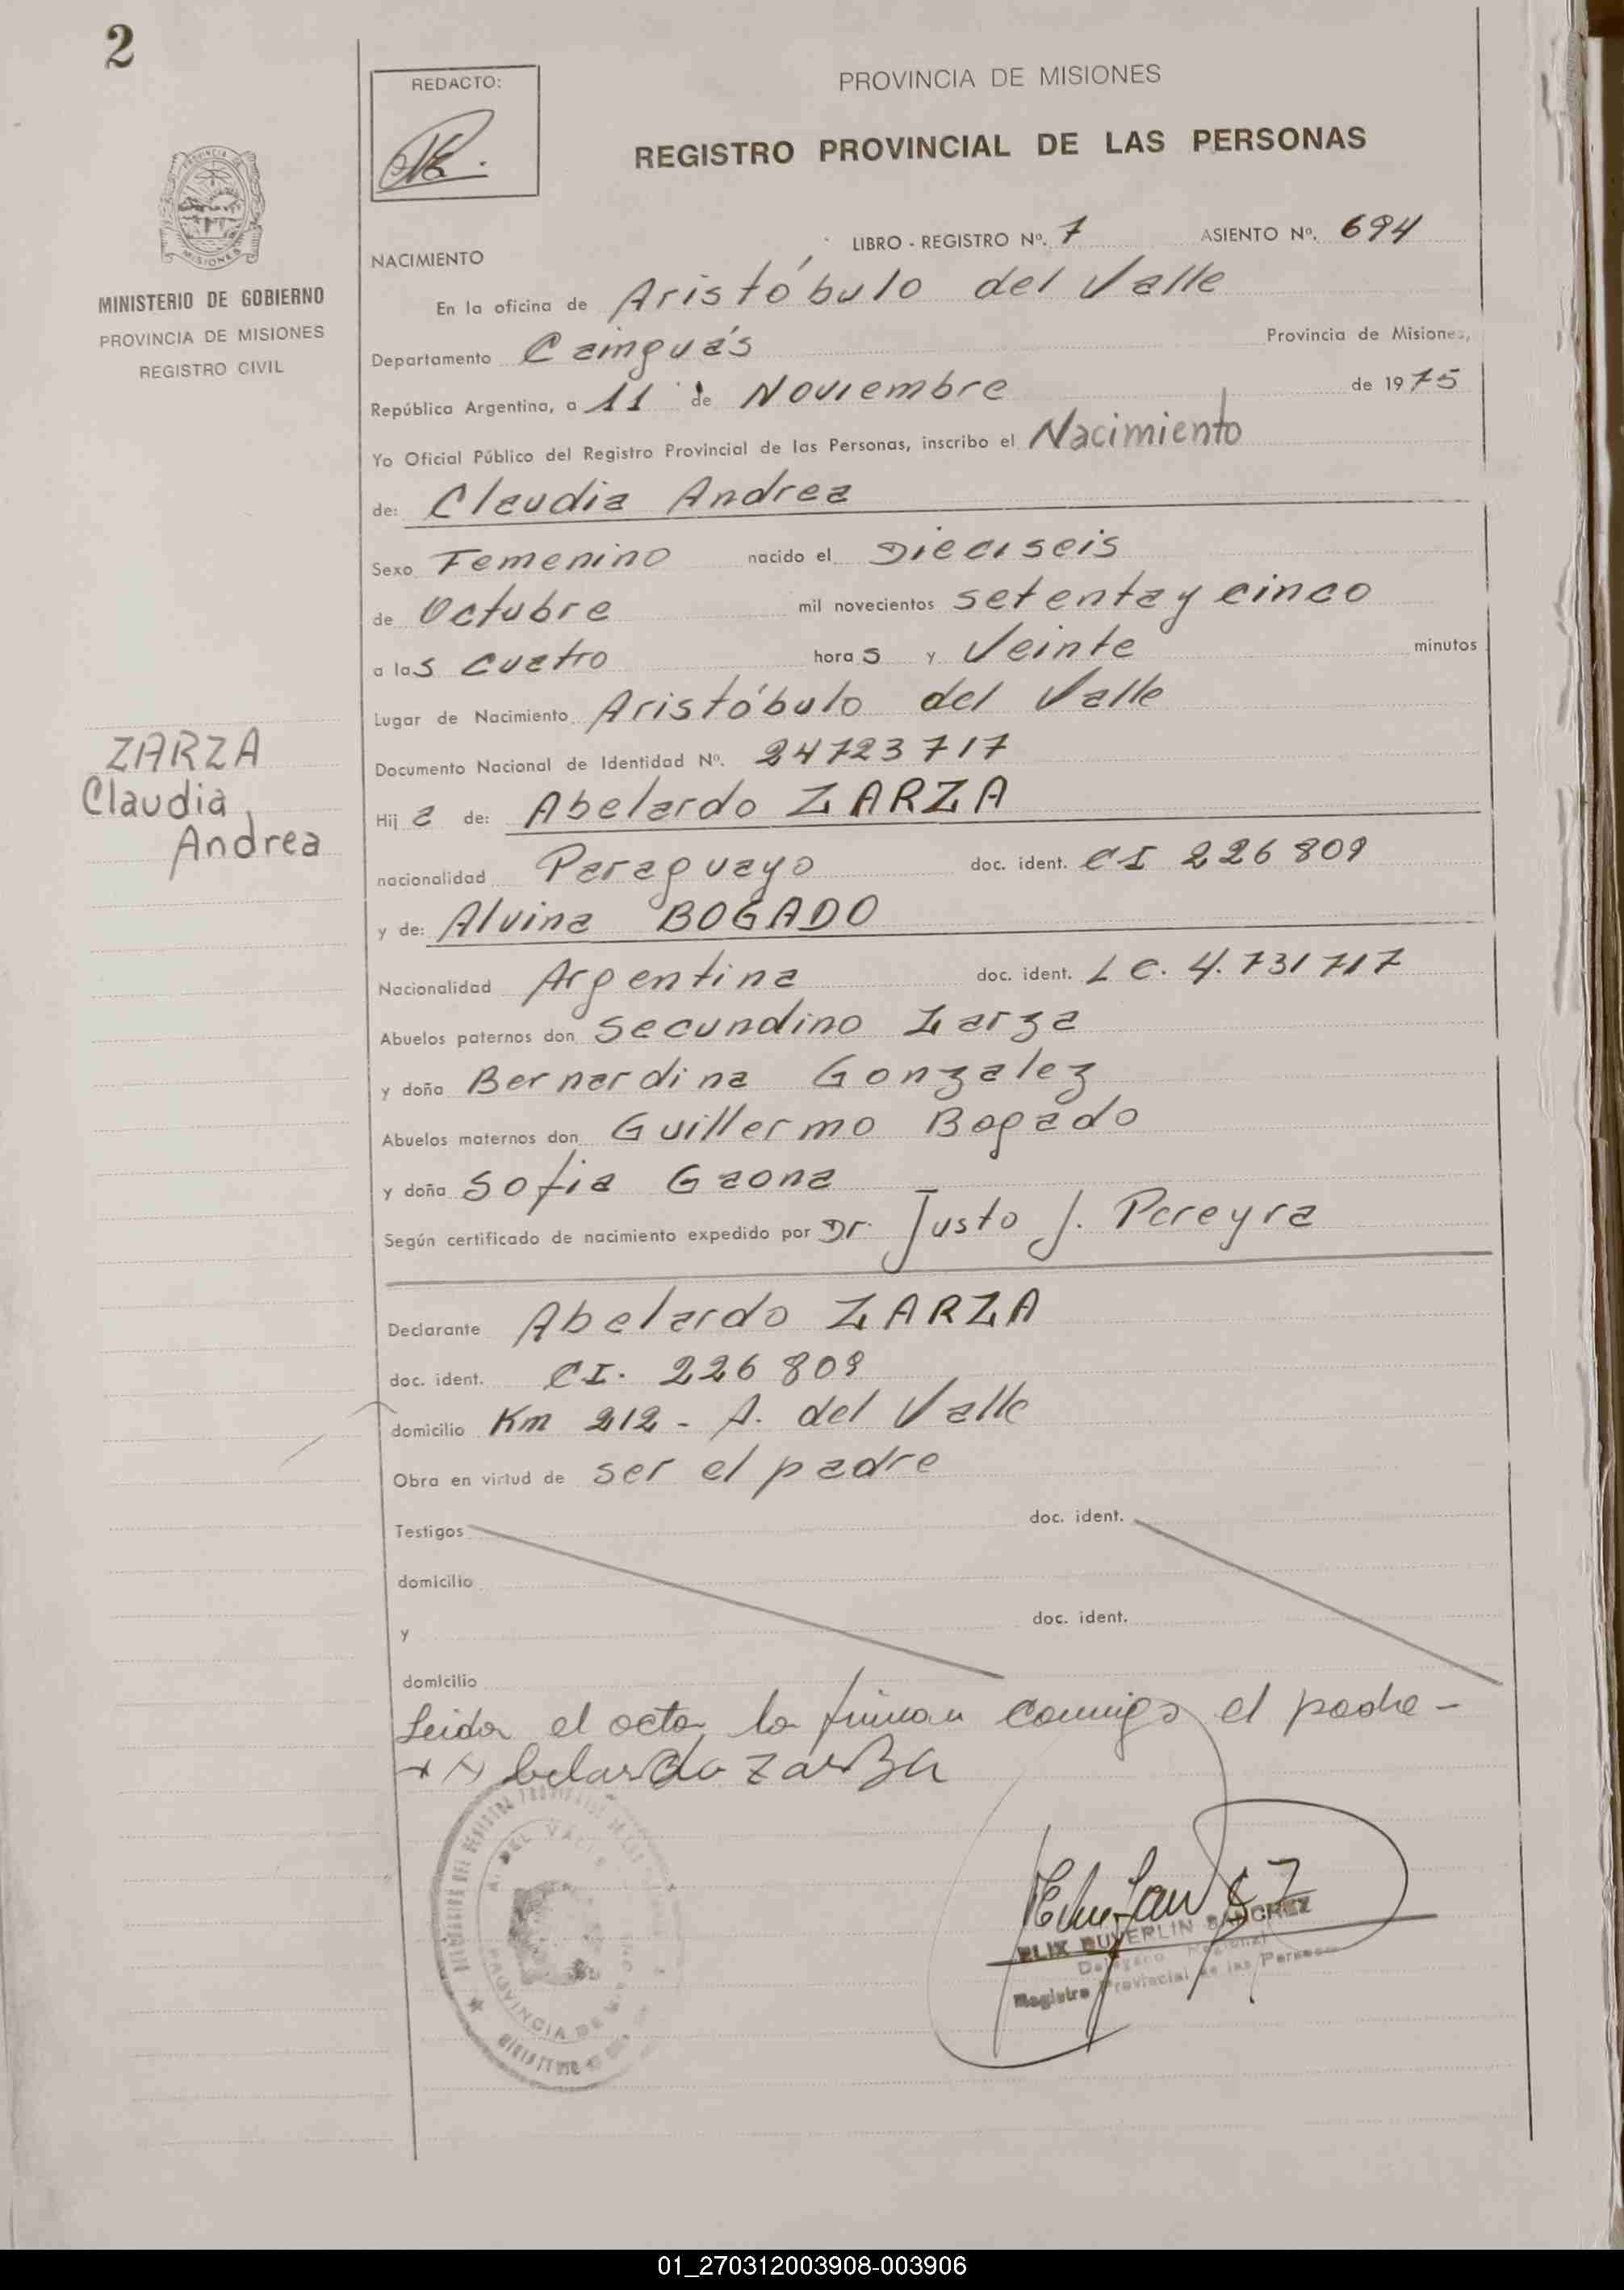 2
REDACTO:
PROVINCIA DE MISIONES
REGISTRO PROVINCIAL DE LAS PERSONAS
MINISTERIO DE GOBIERNO
PROVINCIA DE MISIONES
REGISTRO CIVIL
LIBRO - REGISTRO Nº. 7 ASIENTO Nº. 694
NACIMIENTO
En la oficina de Aristóbulo del Valle
Departamento Cainguás Provincia de Misiones,
República Argentina, a 11 de Noviembre de 1975
Yo Oficial Público del Registro Provincial de las Personas, inscribo el Nacimiento
de: Claudia Andrea
Sexo Femenino nacido el Dieciseis
de Octubre mil novecientos setenta y cinco
a las cuatro horas y Veinte minutos
Lugar de Nacimiento Aristóbulo del Valle
Documento Nacional de Identidad Nº. 24723717
ZARZA
Claudia
Andrea
Hija de: Abelardo ZARZA
nacionalidad Paraguayo doc. ident. CI 226809
y de: Alvina BOGADO
Nacionalidad Argentina doc. ident. L C. 4.731717
Abuelos paternos don Secundino Zarza
y doña Bernardina Gonzalez
Abuelos maternos don Guillermo Bogado
y doña Sofia Gaona
Según certificado de nacimiento expedido por Dr. Justo J. Pereyra
Declarante Abelardo ZARZA
doc. ident. CI. 226809
domicilio Km 212 - A. del Valle
Obra en virtud de ser el padre
Testigos doc. ident.
domicilio
y doc. ident.
domicilio
Leida el acta, la firman conmigo el padre -
Abelardo Zarza
A. DEL VALLE
PROVINCIA DE
SANCHEZ
Delegado Regional
Registro Provincial de las Personas
01_270312003908-003906